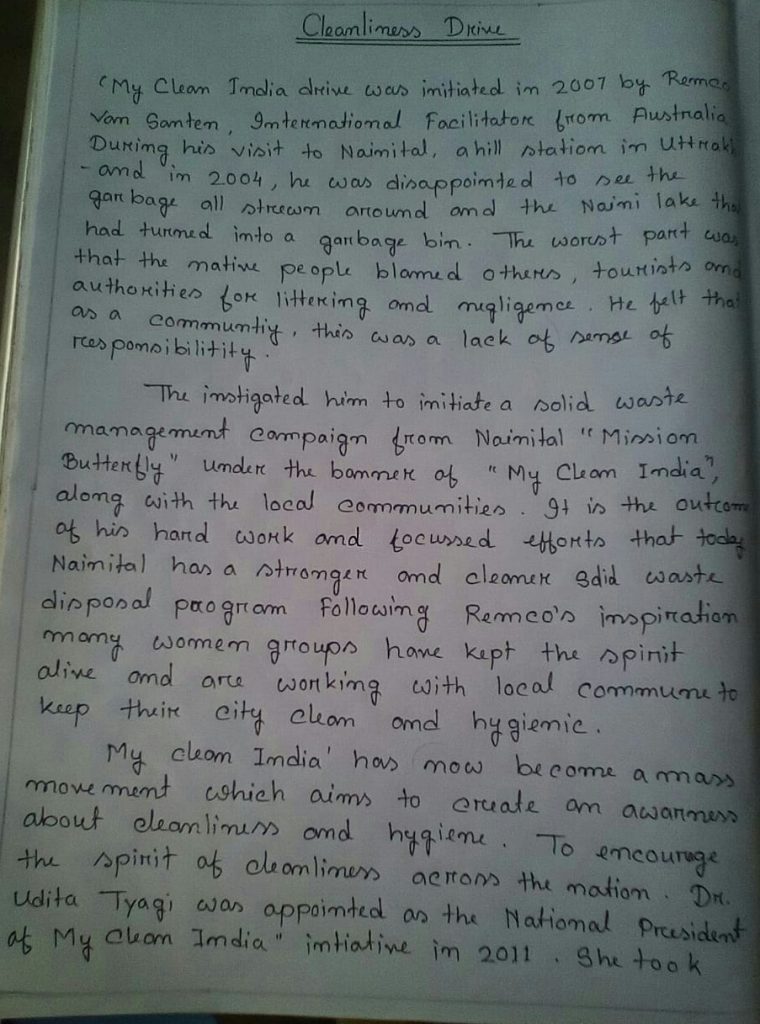 Cleanliness Drive
'My Clean India drive was initiated in 2007 by Remco
Van Santen, International Facilitator from Australia
During his visit to Nainital, a hill station in Uttrakh
-and in 2004, he was disappointed to see the
garbage all strewn around and the Naini lake tha
had turned into a garbage bin. The worst part was
that the native people blamed others, tourists and
authorities for littering and negligence. He felt that
as a communtiy, this was a lack of sense of
responsibilitity.
The instigated him to initiate a solid waste
management campaign from Nainital "Mission
Butterfly" under the banner of "My Clean India",
along with the local communities. It is the outcom
of his hard work and focussed efforts that today
Nainital has a stronger and cleaner sdid waste
disposal program Following Remco's inspiration
many women groups have kept the spirit
alive and are working with local commune to
keep their city clean and hygienic.
My clean India' has now become a mass
movement which aims to create an awarness
about cleanliness and hygiene. To encourage
the spirit of cleanliness across the nation. Dr.
Udita Tyagi was appointed as the National President
of My Clean India" intiative in 2011. She took